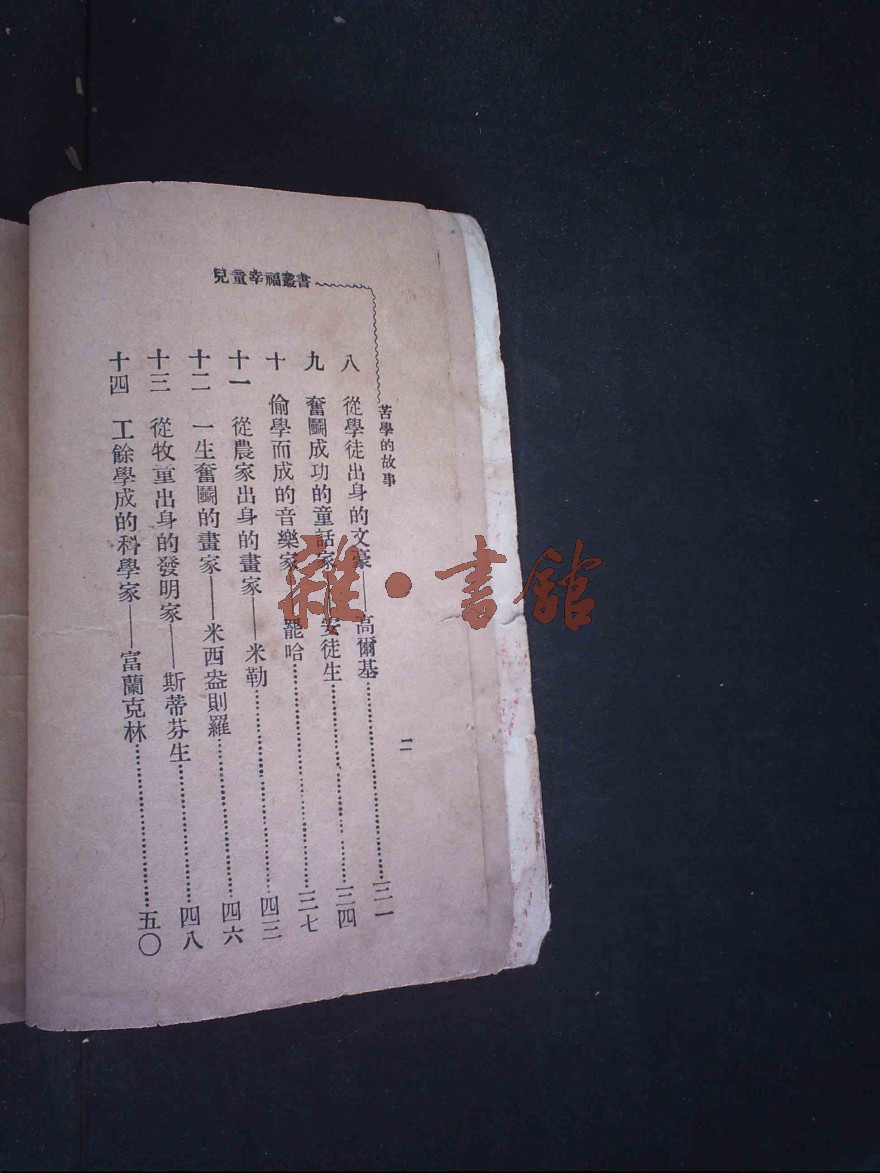 兒童幸福叢書
苦學的故事
二
八 從學徒出身的文豪——高爾基……三一
九 奮鬭成功的童話家——安徒生……三四
十 偷學而成的音樂家——罷哈……三七
十一 從農家出身的畫家——米勒……四三
十二 一生奮鬭的畫家——米西盎則羅……四六
十三 從牧童出身的發明家——斯蒂芬生……四八
十四 工餘學成的科學家——富蘭克林……五〇
雜·書館